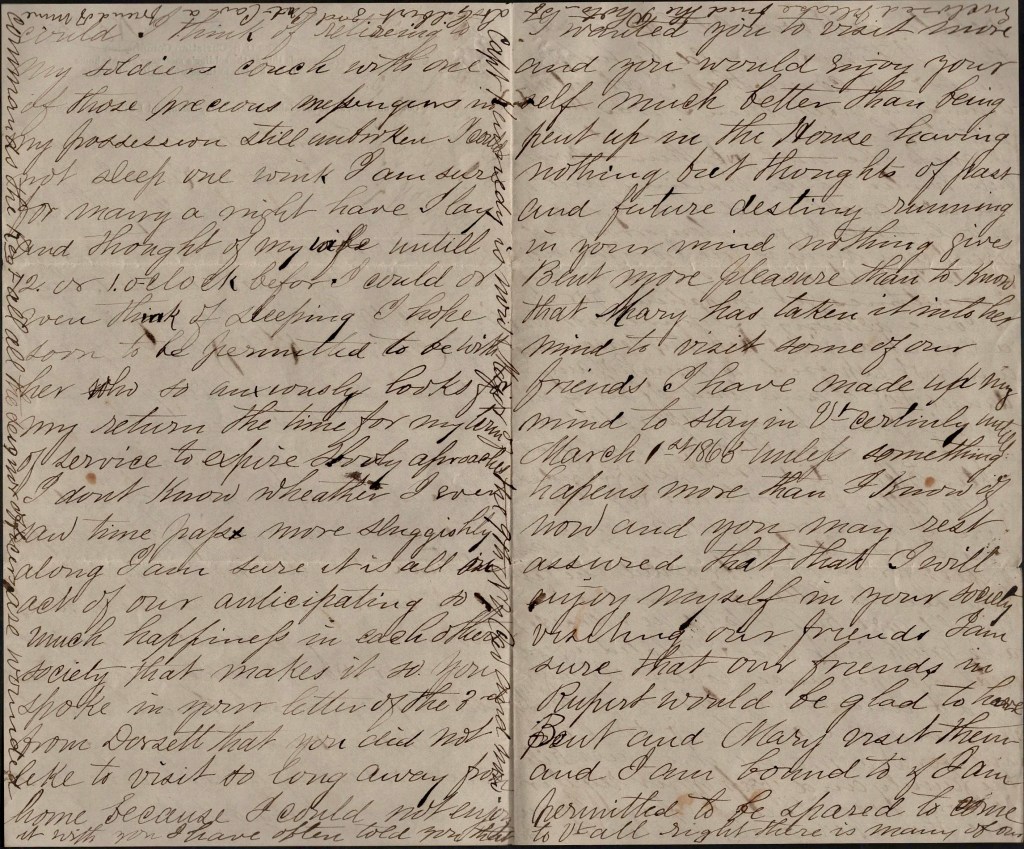 could. I think of retireing to
my soldiers couch with one
of those precious messengers in
my possession still unbroken I could
not sleep one wink I am sure
for many a night have I lay
and thought of my wife untill
12 or 1. oclock befor I could or
even think of sleeping I hope
soon to be permitted to be with
her who so anxiously looks for
my return the time for my term
of service to expire slowly aproaches
I dont know wheather I ever
saw time pass more sluggishly
along I am sure it is all an
act of our anticipating so
much happiness in each others
society that makes it so. you
spoke in your letter of the 3rd
from Dorsett that you did not
like to visit so long away from
home because I could not enjoy
it with you I have often told you that
I wanted you to visit more
and you would enjoy your
self much better than being
pent up in the House having
nothing but thoughts of past
and future destiny running
in your mind nothing give
Bent more pleasure than to know
that Mary has taken it into her
mind to visit some of our
friends I have made up my
mind to stay in Vt certinly untill
March 1st 1866 unless something
hapens more than I know of
now and you may rest
assured that that I will
enjoy myself in your society
visiting our friends I am
sure that our friends in
Rupert would be glad to have
Bent and Mary visit them
and I am bound to if I am
permitted to be spared to come
to Vt all right there is many of our
Capt is now
commands the
are now
enclosed please find the Photo of